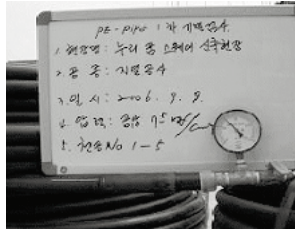 PE-PIPE 1차 기밀검사
1. 현장명: 누리 꿈 스퀘어 신축현장
2. 공 종: 지열공사
3. 일 시: 2006. 9. 9.
4. 압 력:
5. 천공No 1-5